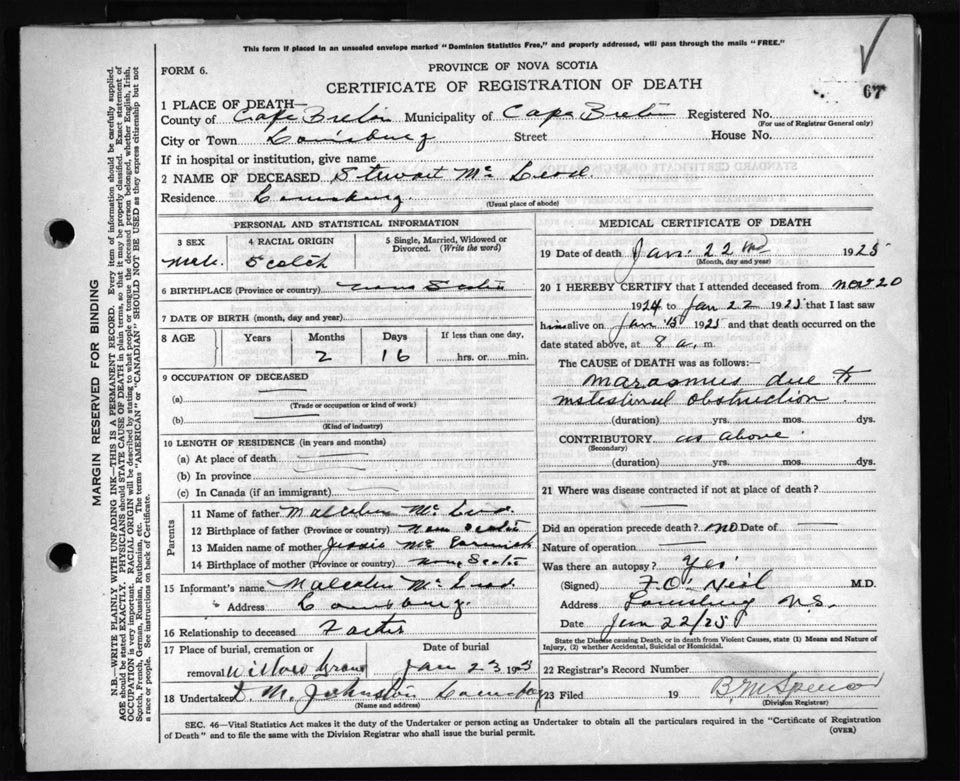 This form if placed in an unsealed envelope marked "Dominion Statistics Free," and properly addressed, will pass through the mails "FREE."
67
FORM 6.
PROVINCE OF NOVA SCOTIA
CERTIFICATE OF REGISTRATION OF DEATH
1 PLACE OF DEATH—
County of Cape Breton Municipality of Cape Breton Registered No.
(For use of Registrar General only)
City or Town Louisburg Street House No.
If in hospital or institution, give name
2 NAME OF DECEASED Stewart Mc Leod.
Residence Louisburg. (Usual place of abode)
MARGIN RESERVED FOR BINDING
N.B.—WRITE PLAINLY WITH UNFADING INK—THIS IS A PERMANENT RECORD. Every item of information should be carefully supplied.
AGE should be stated EXACTLY. PHYSICIANS should STATE CAUSE OF DEATH in plain terms, so that it may be properly classified. Exact statement of
OCCUPATION is very important. RACIAL ORIGIN will be described by stating to what people or tongue the deceased person belonged, whether English, Irish,
Scotch, French, German, Russian, Ruthenian, etc. The terms "AMERICAN" or "CANADIAN" SHOULD NOT BE USED as they express citizenship but not
a race or people. See instructions on back of Certificate.
PERSONAL AND STATISTICAL INFORMATION
3 SEX
Male.
4 RACIAL ORIGIN
Scotch
5 Single, Married, Widowed or
Divorced. (Write the word)
6 BIRTHPLACE (Province or country) Nova Scotia
7 DATE OF BIRTH (month, day and year)
8 AGE Years Months Days If less than one day,
2 16 hrs. or min.
9 OCCUPATION OF DECEASED
(a)
(Trade or occupation or kind of work)
(b)
(Kind of industry)
10 LENGTH OF RESIDENCE (in years and months)
(a) At place of death
(b) In province
(c) In Canada (if an immigrant)
Parents
11 Name of father Malcolm Mc Leod.
12 Birthplace of father (Province or country) Nova Scotia
13 Maiden name of mother Jessie Mc Cormick
14 Birthplace of mother (Province or country) Nova Scotia
15 Informant's name Malcolm Mc Leod.
Address Louisburg.
16 Relationship to deceased Father
17 Place of burial, cremation or Date of burial
removal Willow Grove Jan 23 1925
18 Undertaker D. M. Johnston Louisburg
(Name and address)
MEDICAL CERTIFICATE OF DEATH
19 Date of death Jan: 22nd 1925
(Month, day and year)
20 I HEREBY CERTIFY that I attended deceased from Nov 20
1924 to Jan 22 1925 that I last saw
him alive on Jan 13 1925 and that death occurred on
date stated above, at 8 a. m.
The CAUSE of DEATH was as follows:
Marasmus due to
intestinal obstruction
(duration) yrs. mos. dys.
CONTRIBUTORY as above
(Secondary)
(duration) yrs. mos. dys.
21 Where was disease contracted if not at place of death?
Did an operation precede death? no Date of
Nature of operation
Was there an autopsy? Yes
(Signed) F. O'Neil M.D.
Address Louisburg N.S.
Date Jan 22/25
State the Disease causing Death, or in death from Violent Causes, state (1) Means and Nature of
Injury, (2) whether Accidental, Suicidal or Homicidal.
22 Registrar's Record Number
23 Filed 19 B. M. Spencer
(Division Registrar)
SEC. 46—Vital Statistics Act makes it the duty of the Undertaker or person acting as Undertaker to obtain all the particulars required in the "Certificate of Registration
of Death" and to file the same with the Division Registrar who shall issue the burial permit. (OVER)